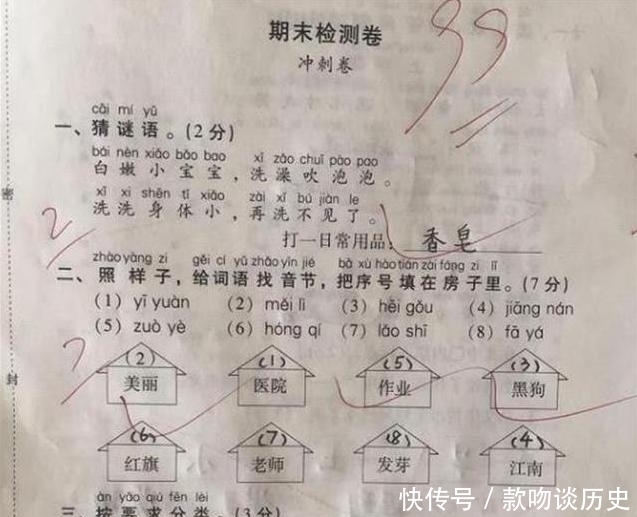 期末检测卷
99
冲刺卷
cāi mí yǔ
一、猜谜语。(2分)
bái nèn xiǎo bǎo bao xǐ zǎo chuī pào pao
白嫩小宝宝,洗澡吹泡泡。
xǐ xi shēn tǐ xiǎo zài xǐ bú jiàn le
洗洗身体小,再洗不见了。
2
打一日常用品: 香皂
zhào yàng zi gěi cí yǔ zhǎo yīn jié bǎ xù hào tián zài fáng zi lǐ
二、照样子,给词语找音节,把序号填在房子里。(7分)
(1) yī yuàn (2) měi lì (3) hēi gǒu (4) jiāng nán
(5) zuò yè (6) hóng qí (7) lǎo shī (8) fā yá
7
(2) (1) (5) (3)
美丽 医院 作业 黑狗
(6) (7) (8) (4)
红旗 老师 发芽 江南
àn yāo qiú fēn lèi
三、按要求分类。(3分)
密
封
快传号 / 款吻谈历史